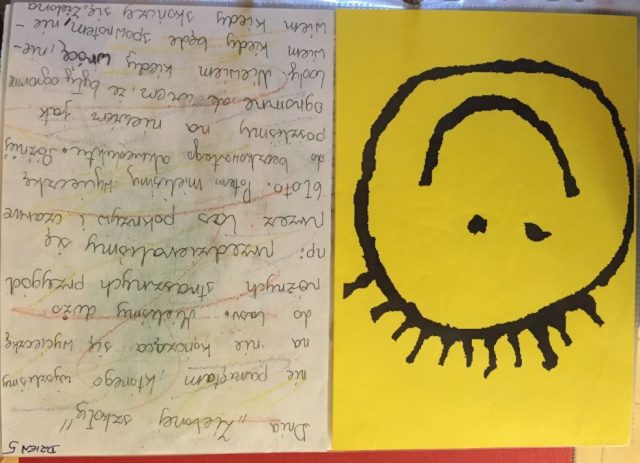 DZIEŃ 5
Dnia „Zielonej szkoły"
nie pamiętam, którego wyszliśmy
na nie kończąca się wycieczkę
do lasu. Mieliśmy dużo
różnych strasznych przygód
np: przedzieraliśmy się
przez las pokrzyw i czarne
błoto. Potem mieliśmy wycieczkę
do akweduktu. Później
poszliśmy na niewiem jak
ogromne, ale wiem, że były ogromne
lody. Niewiem kiedy wrócę, nie-
wiem kiedy będe spowrotem, nie-
wiem kiedy skończy się Zielona